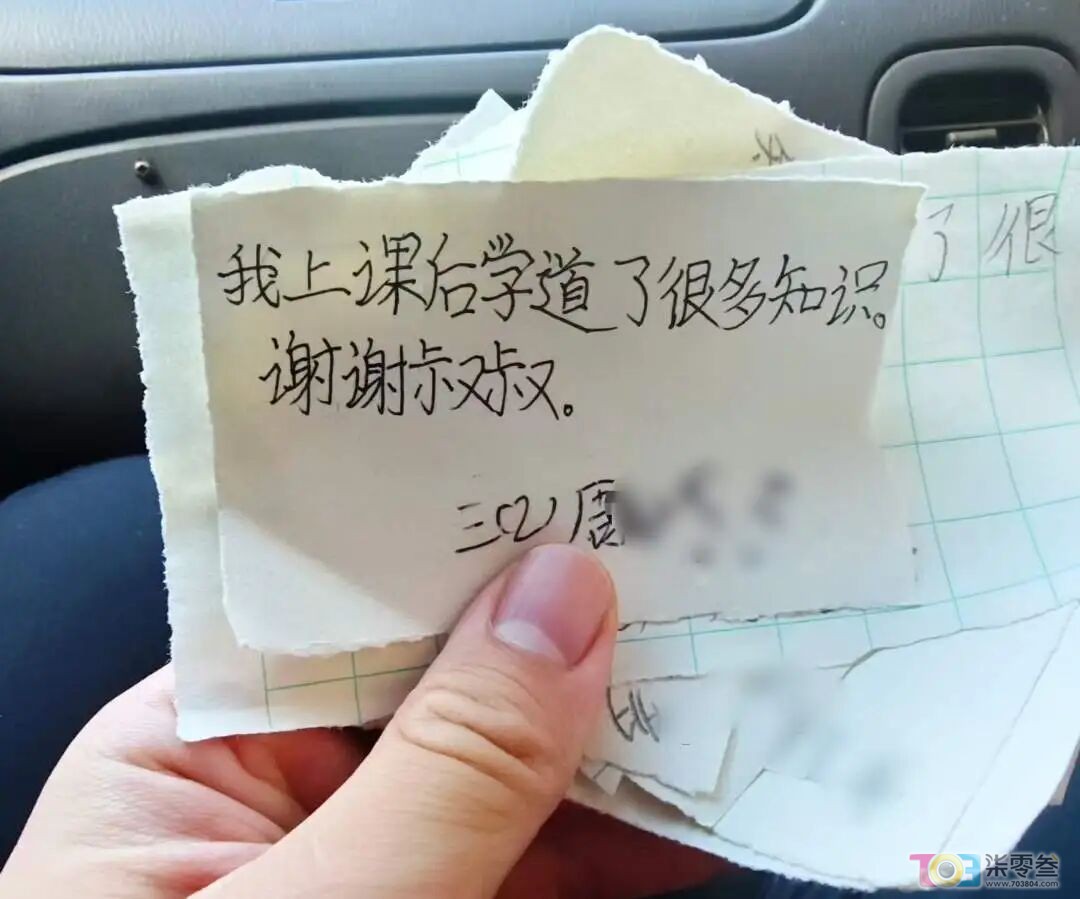 我上课后学道了很多知识。
谢谢叔叔。
周
了很
703 柒零叁
www.703804.com